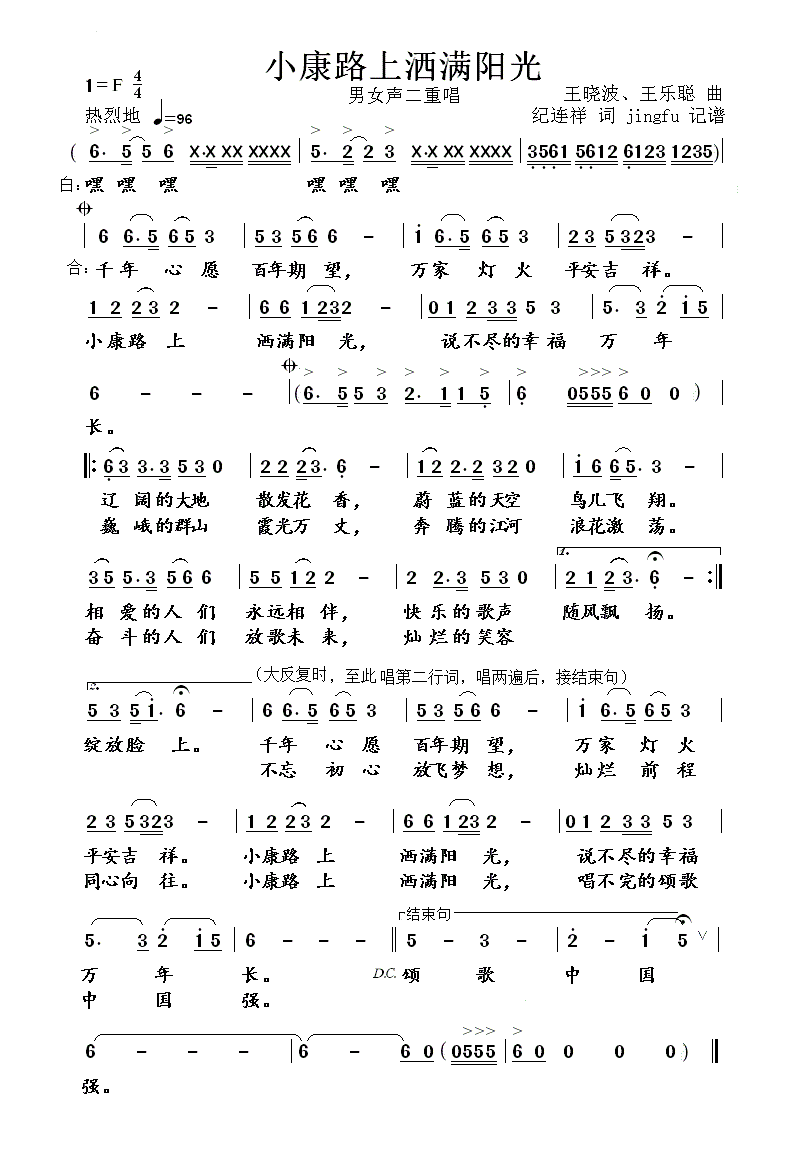 小康路上洒满阳光
1=F 4/4
男女声二重唱
王晓波、王乐聪 曲
热烈地 ♩=96
纪连祥 词 jingfu 记谱
( 6· 5 5 6 X·X XX XXXX | 5· 2 2 3 X·X XX XXXX | 3561 5612 6123 1235) |
白: 嘿 嘿 嘿 嘿 嘿 嘿
| 6 6·5 65 3 | 53 56 6 - | i 6·5 65 3 | 23 5323 - |
合: 千 年 心 愿 百年期 望, 万 家 灯 火 平安吉 祥。
12 23 2 - | 66 1232 - | 01 23 35 3 | 5· 3 2 i5 |
小康路 上 洒满阳 光, 说不尽的幸 福 万 年
6 - - - | (6·5 53 2·1 15 | 6 0555 6 0 0 ) |
长。
‖: 63 3·3 53 0 | 22 23· 6 - | 12 2·2 32 0 | i6 65· 3 - |
辽 阔的大地 散发花 香, 蔚 蓝的天空 鸟儿飞 翔。
巍 峨的群山 霞光万 丈, 奔 腾的江河 浪花激 荡。
1.
35 5·3 56 6 | 55 12 2 - | 2 2·3 53 0 | 21 23· 6 - :‖
相 爱的人 们 永远相 伴, 快 乐的歌声 随风飘 扬。
奋 斗的人 们 放歌未 来, 灿 烂的笑容
2.
(大反复时, 至此 唱第二行词, 唱两遍后, 接结束句)
53 5i· 6 - | 6 6·5 65 3 | 53 56 6 - | i 6·5 65 3 |
绽放脸 上。 千 年 心 愿 百年期 望, 万 家 灯 火
不 忘 初 心 放飞梦 想, 灿 烂 前 程
23 5323 - | 12 23 2 - | 66 1232 - | 01 23 35 3 |
平安吉 祥。 小康路 上 洒满阳 光, 说不尽的幸福
同心向 往。 小康路 上 洒满阳 光, 唱不完的颂歌
结束句
5· 3 2 i5 | 6 - - - ‖ 5 - 3 - | 2 - i 5 ∨ |
万 年 长。 D.C. 颂 歌 中 国
中 国 强。
6 - - - | 6 - 6 0 ( 0555 | 6 0 0 0 0 ) ‖
强。